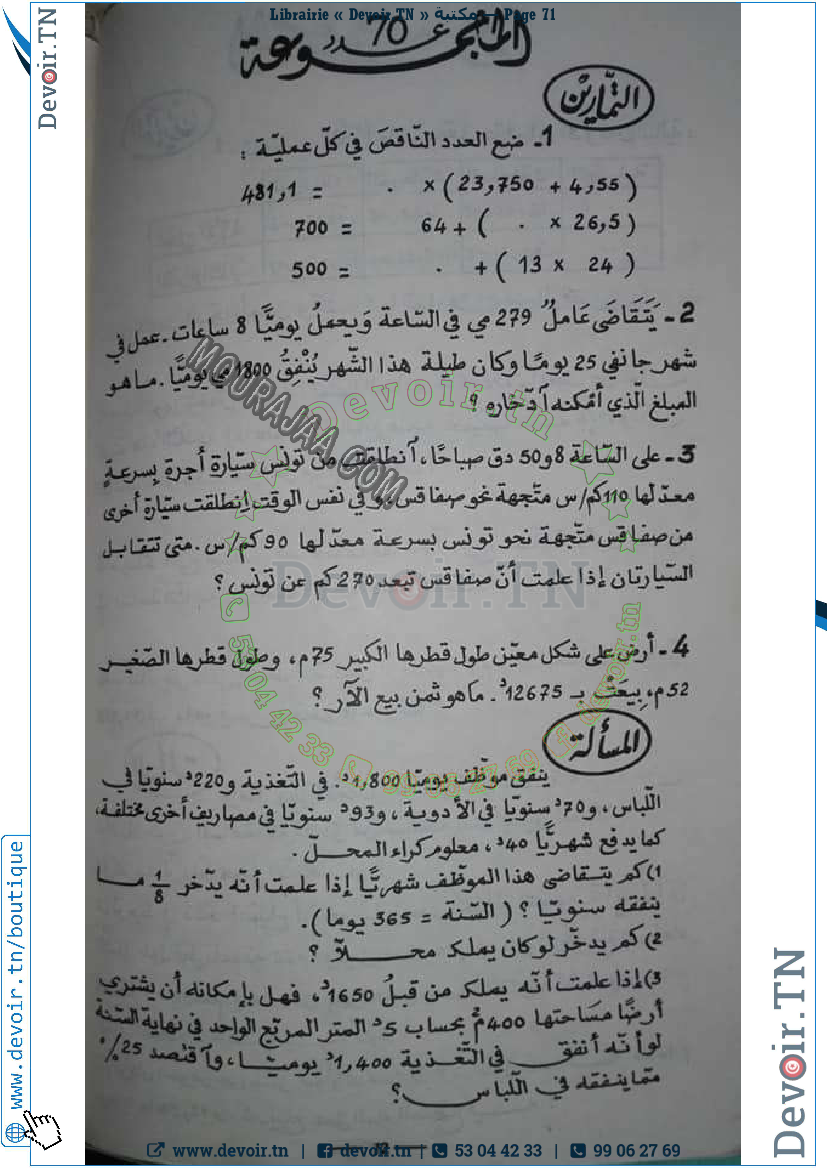 Librairie « Devoir.TN » مكتبة — Page 71
المجموعة عدد 70
التمارين
1- ضع العدد النّاقصَ في كلّ عمليّة :
(4,55 + 23,750) × . = 481,1
(26,5 × . ) + 64 = 700
(24 × 13 ) + . = 500
2- يَتَقَاضَى عَامِلٌ 279 مي في السّاعة وَيعملُ يوميًّا 8 ساعات. عمل في
شهر جانفي 25 يومًا وكان طيلة هذا الشّهر يُنْفِقُ 1800 مي يوميًّا. ما هو
المبلغ الّذي أمْكنه اَدّخاره ؟
3- على السّاعة 8 و50 دق صباحًا، اَنطلقت من تونس سيّارة أجرة بِسرعةٍ
معدّلها 110 كم/س متّجهة نحو صفاقس، وفي نفس الوقت إنطلقت سيّارة أخرى
من صفاقس متّجهة نحو تونس بسرعة معدّلها 90 كم/س. متى تتقابل
السّيارتان إذا علمت أنّ صفاقس تبعد 270 كم عن تونس ؟
4- أرض على شكل معيّن طول قطرها الكبير 75م، وطول قطرها الصّغير
52م، بِيعَتْ بـ 12675د. ما هو ثمن بيع الآر ؟
المسألة
ينفق موظّف يوميّا 1,800د. في التّغذية و220د سنويّا في
اللّباس، و70د سنويّا في الأدوية، و93د سنويّا في مصاريف أخرى مختلفة،
كما يدفع شهريًّا 40د، معلوم كراء المحلّ.
1) كم يتقاضى هذا الموظّف شهريًّا إذا علمت أنّه يدّخر 1/8 ما
ينفقه سنويّا ؟ (السّنة = 365 يوما).
2) كم يدخّر لو كان يملك محلاّ ؟
3) إذا علمت أنّه يملك من قبلُ 1650د، فهل بإمكانه أن يشتري
أرضًا مسَاحتها 400م² بحساب 5د المتر المربّع الواحد في نهاية السّنة
لو أنّه أنفق في التّغذية 1,400د يوميّا، وآقتصد 25%
ممّا ينفقه في اللّباس ؟
MOURAJAA.COM
@evoir.tn
Devoir.TN
53 04 42 33
99 06 27 69
devoir.tn
Devoir.TN
www.devoir.tn/boutique
Devoir.TN
www.devoir.tn | devoir.tn | 53 04 42 33 | 99 06 27 69